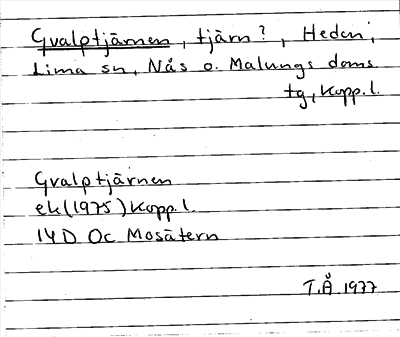 Gvalptjärnen, tjärn?, Heden,
Lima sn, Nås o. Malungs doms.
tg, Kopp. l.
Gvalptjärnen
ek (1975) Kopp. l.
14D Oc Mosätern
T.Å 1977